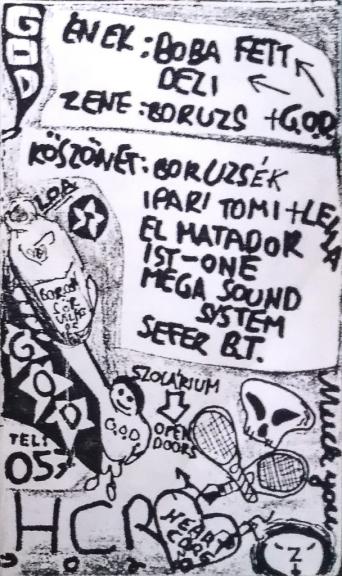 G.O.D
ÉNEK: BOBA FETT
DEZI
ZENE: BORUZS + G.O.D.
KÖSZÖNET: BORUZSÉK
IPARI TOMI + LEILA
EL MATADOR
IST-ONE
MEGA SOUND
SYSTEM
SEFER B.T.
LOA
G.O.D
SZOLÁRIUM
OPEN
DOORS
G.O.D
TEL:
05
Much you
H.C.R.
HEART
CORE
Z